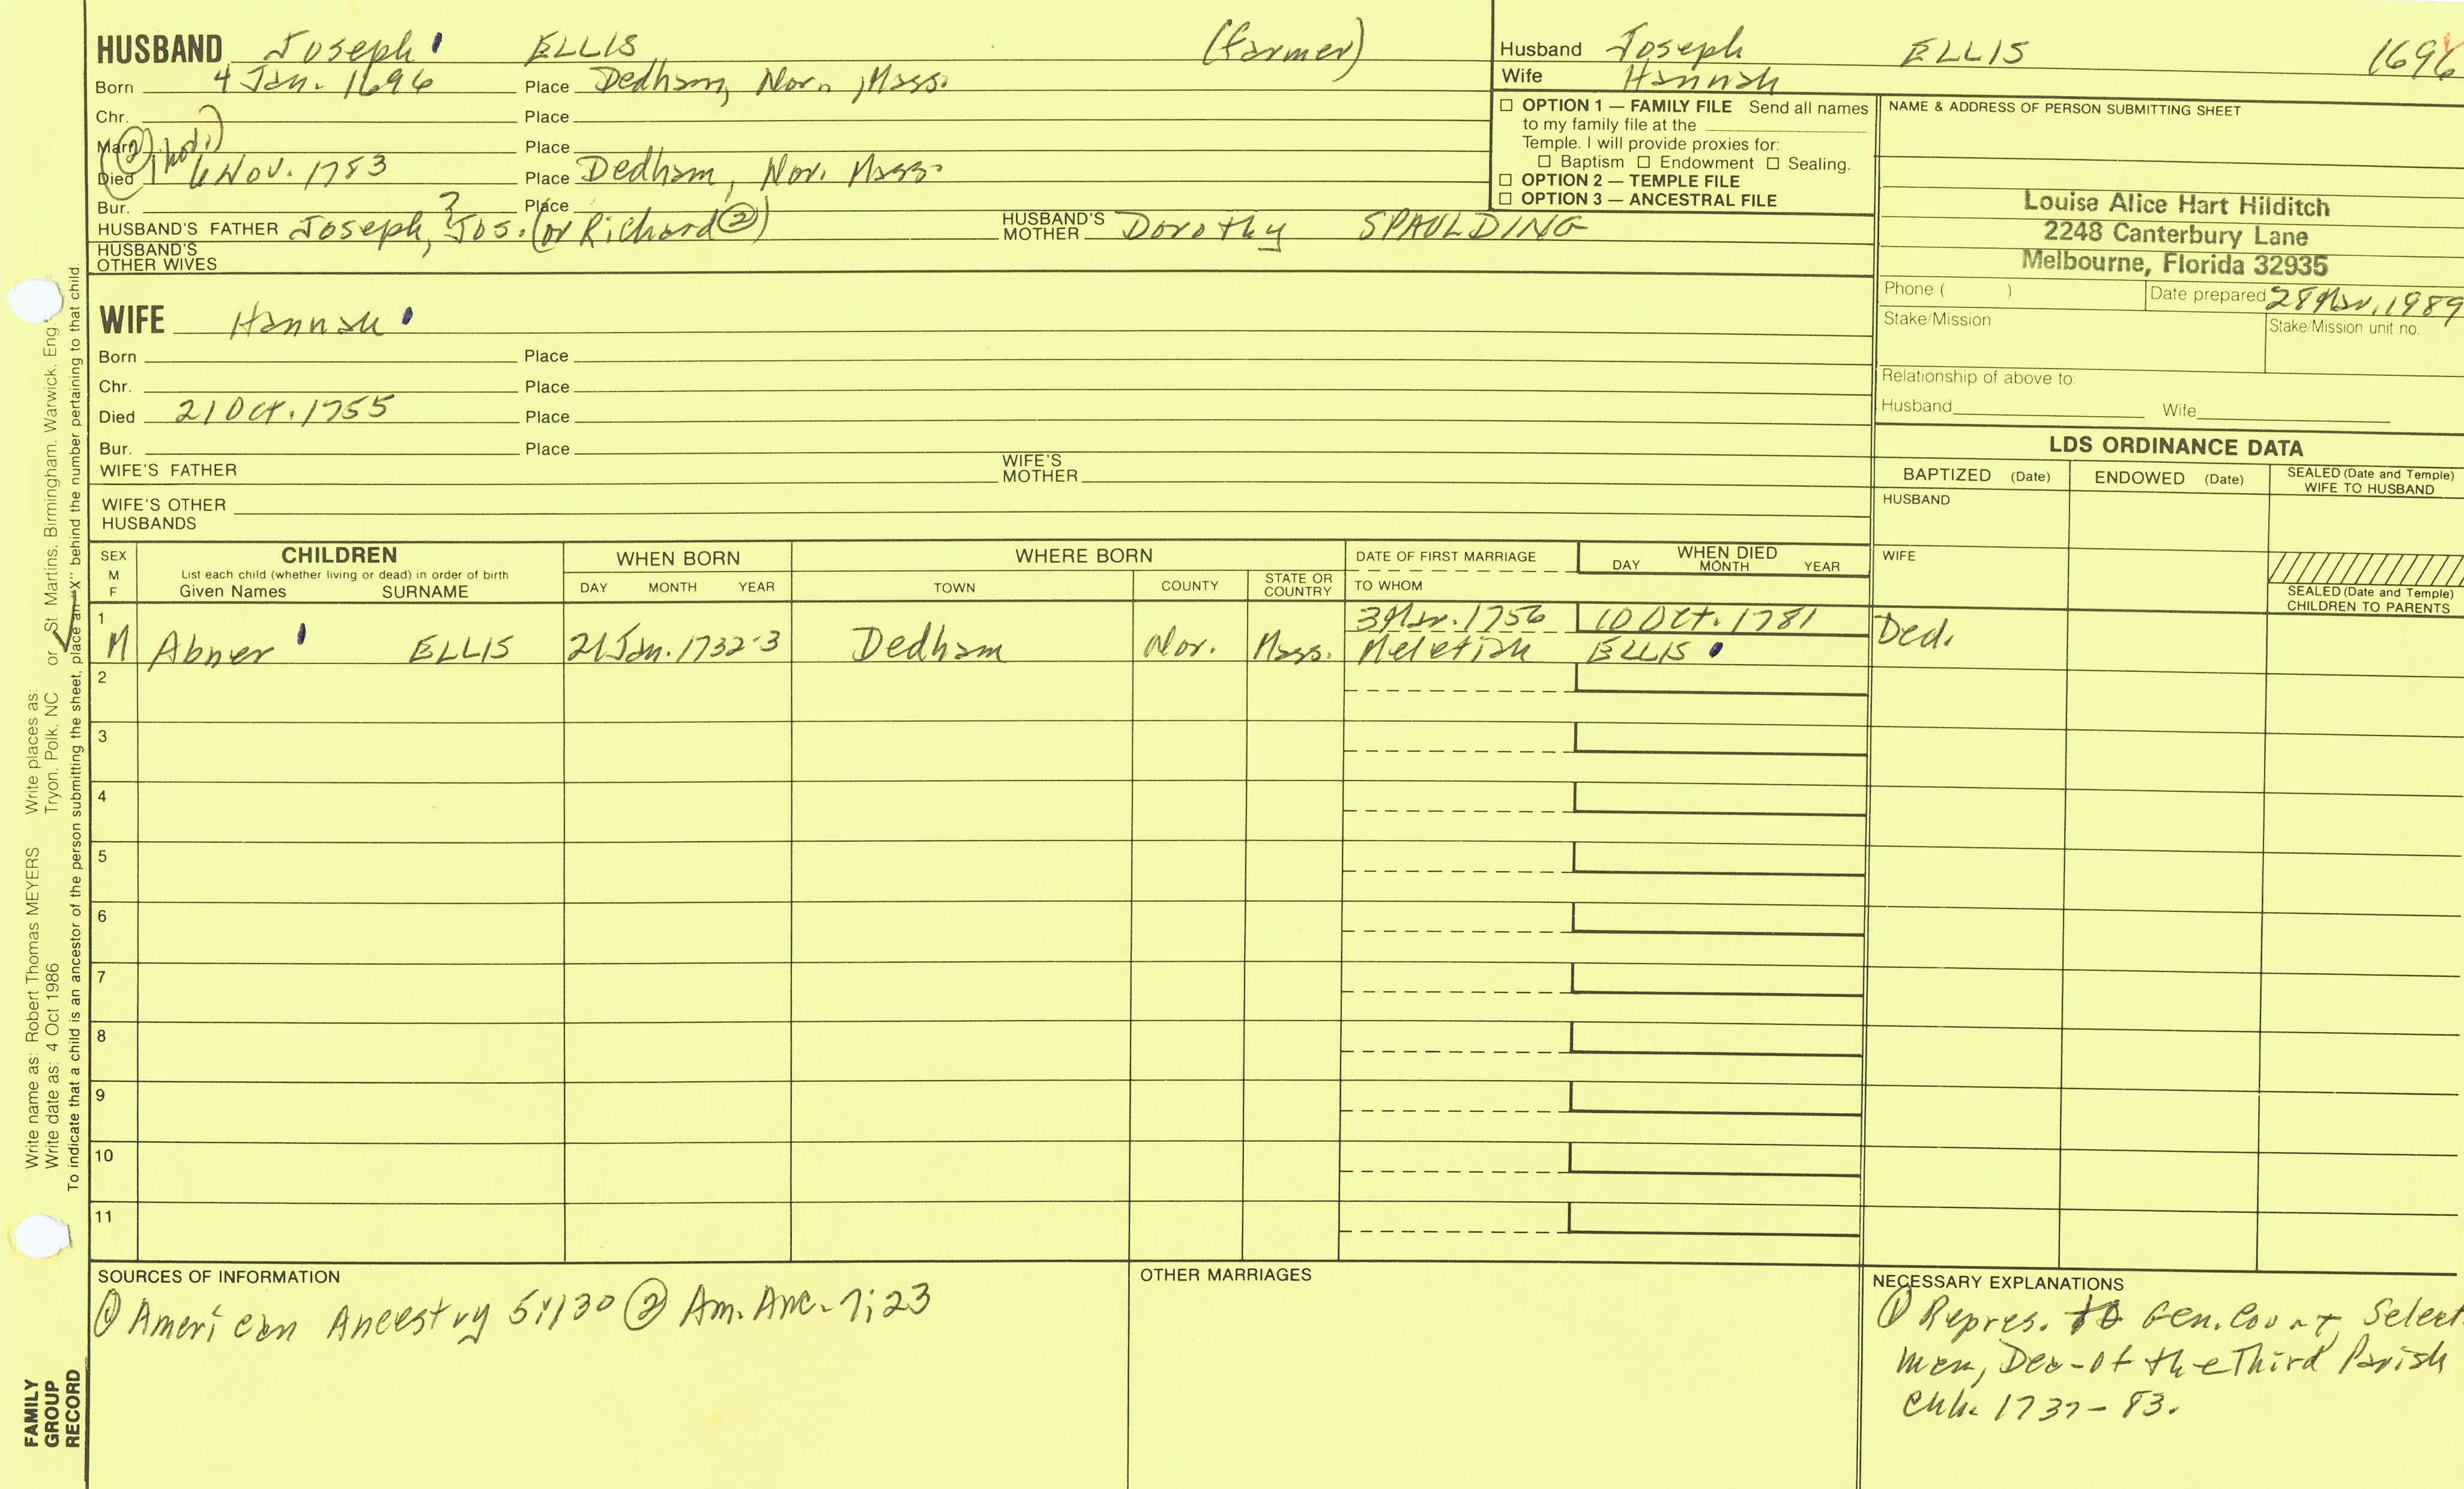 HUSBAND Joseph ELLIS (farmer)
Born 4 Jan. 1696 Place Dedham, Nor., Mass.
Chr. Place
Marr. Place
Died 6 Nov. 1783 Place Dedham, Nor. Mass.
Bur. Place
HUSBAND'S FATHER Joseph, Jos.? (or Richard②) HUSBAND'S MOTHER Dorothy SPAULDING
HUSBAND'S OTHER WIVES
WIFE Hannah
Born Place
Chr. Place
Died 21 Oct. 1755 Place
Bur. Place
WIFE'S FATHER WIFE'S MOTHER
WIFE'S OTHER HUSBANDS
Husband Joseph ELLIS 1696
Wife Hannah
☐ OPTION 1 — FAMILY FILE Send all names
to my family file at the
Temple. I will provide proxies for:
☐ Baptism ☐ Endowment ☐ Sealing.
☐ OPTION 2 — TEMPLE FILE
☐ OPTION 3 — ANCESTRAL FILE
NAME & ADDRESS OF PERSON SUBMITTING SHEET
Louise Alice Hart Hilditch
2248 Canterbury Lane
Melbourne, Florida 32935
Phone ( ) Date prepared 28 Mar. 1989
Stake/Mission Stake/Mission unit no.
Relationship of above to:
Husband Wife
LDS ORDINANCE DATA
BAPTIZED (Date) ENDOWED (Date) SEALED (Date and Temple) WIFE TO HUSBAND
HUSBAND
WIFE
SEALED (Date and Temple) CHILDREN TO PARENTS
SEX M F
CHILDREN
List each child (whether living or dead) in order of birth
Given Names SURNAME
WHEN BORN
DAY MONTH YEAR
WHERE BORN
TOWN COUNTY STATE OR COUNTRY
DATE OF FIRST MARRIAGE
TO WHOM
WHEN DIED
DAY MONTH YEAR
1 3 Mar. 1756 10 Oct. 1781
M Abner ELLIS 21 Jan. 1732-3 Dedham Nor. Mass. Meletiah ELLIS Ded.
2
3
4
5
6
7
8
9
10
11
SOURCES OF INFORMATION
① American Ancestry 5:130 ② Am. Anc. 7:23
OTHER MARRIAGES
NECESSARY EXPLANATIONS
① Repres. to Gen. Court, Select
men, Dea. of the Third Parish
Chh. 1737-83.
Write name as: Robert Thomas MEYERS Write places as:
Write date as: 4 Oct 1986 Tryon, Polk, NC or St. Martins, Birmingham, Warwick, Eng.
To indicate that a child is an ancestor of the person submitting the sheet, place an "X" behind the number pertaining to that child.
FAMILY
GROUP
RECORD